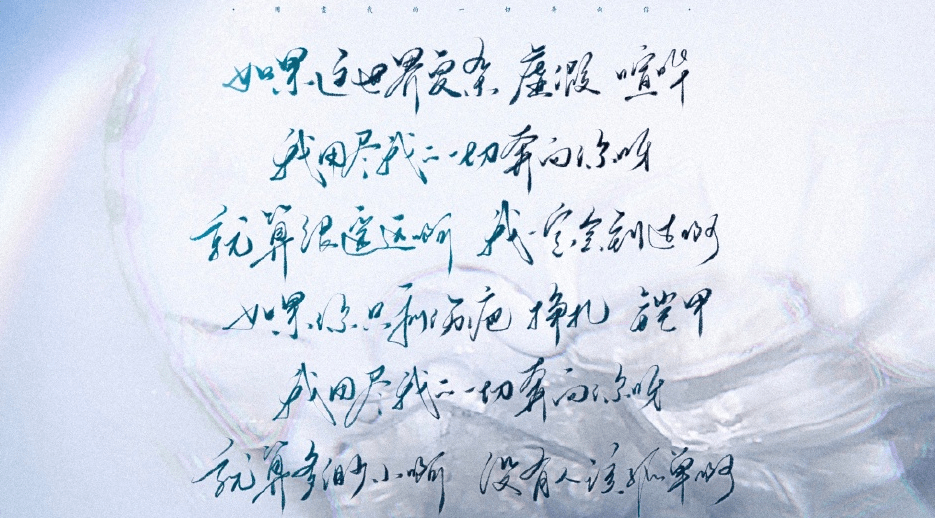 ·用盡我的一切奔向你·
如果这世界复杂 虚假 喧哗
我用尽我的一切奔向你呀
就算很遥远啊 我一定会到达啊
如果你只剩伤疤 挣扎 铠甲
我用尽我的一切奔向你呀
就算多渺小啊 没有人该孤单啊